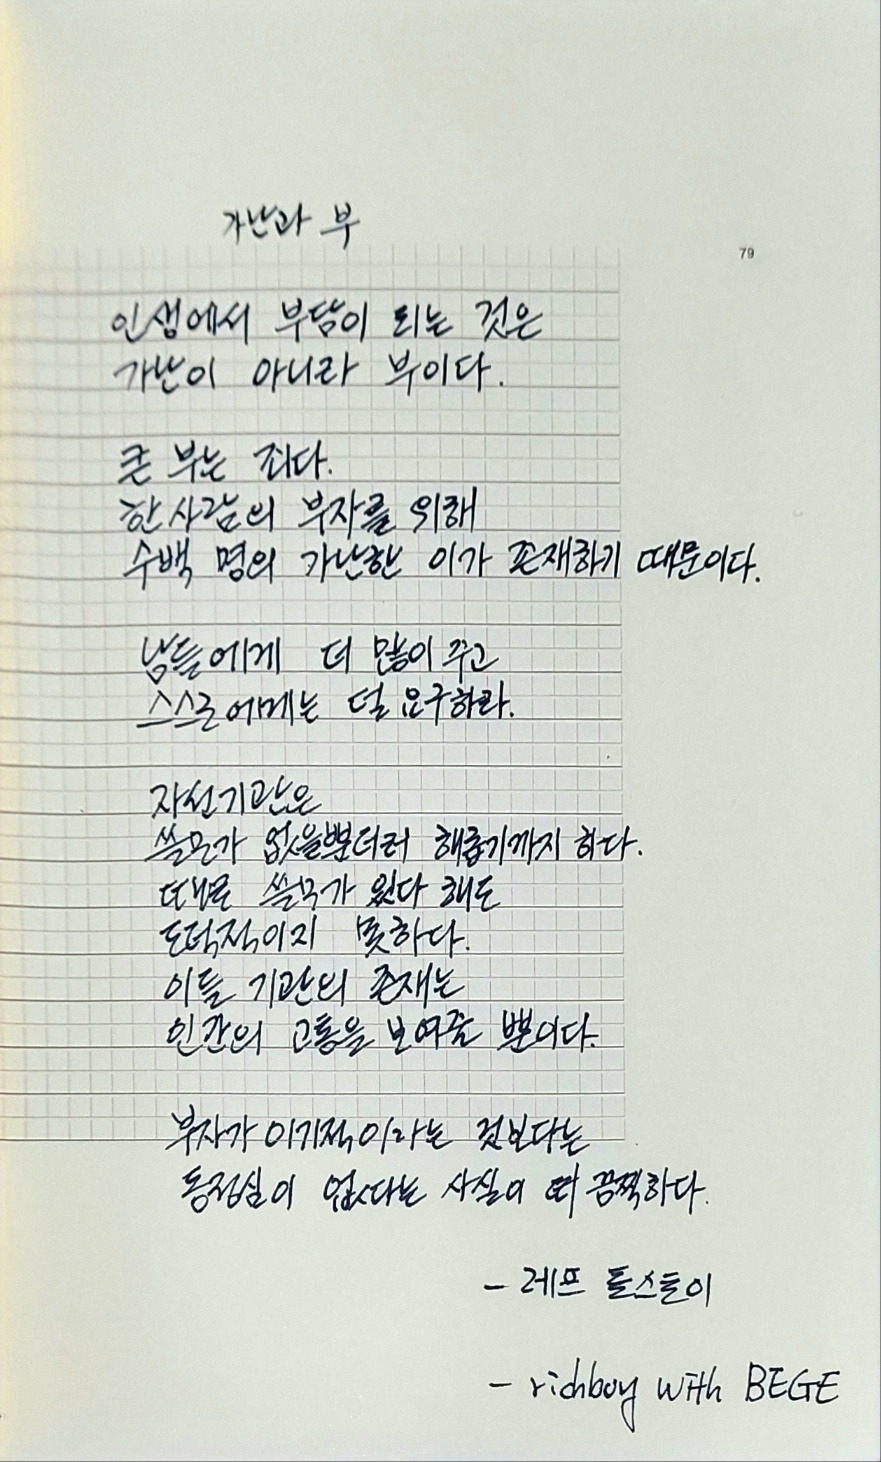 가난과 부
79
인생에서 부담이 되는 것은
가난이 아니라 부이다.
큰 부는 죄다.
한 사람의 부자를 위해
수백 명의 가난한 이가 존재하기 때문이다.
남들에게 더 많이 주고
스스로에게는 덜 요구하라.
자선기관은
쓸모가 없을뿐더러 해롭기까지 하다.
때로 쓸모가 있다 해도
도덕적이지 못하다.
이들 기관의 존재는
인간의 고통을 보여줄 뿐이다.
부자가 이기적이라는 것보다는
동정심이 없다는 사실이 더 끔찍하다.
- 레프 톨스토이
- richboy with BEGE